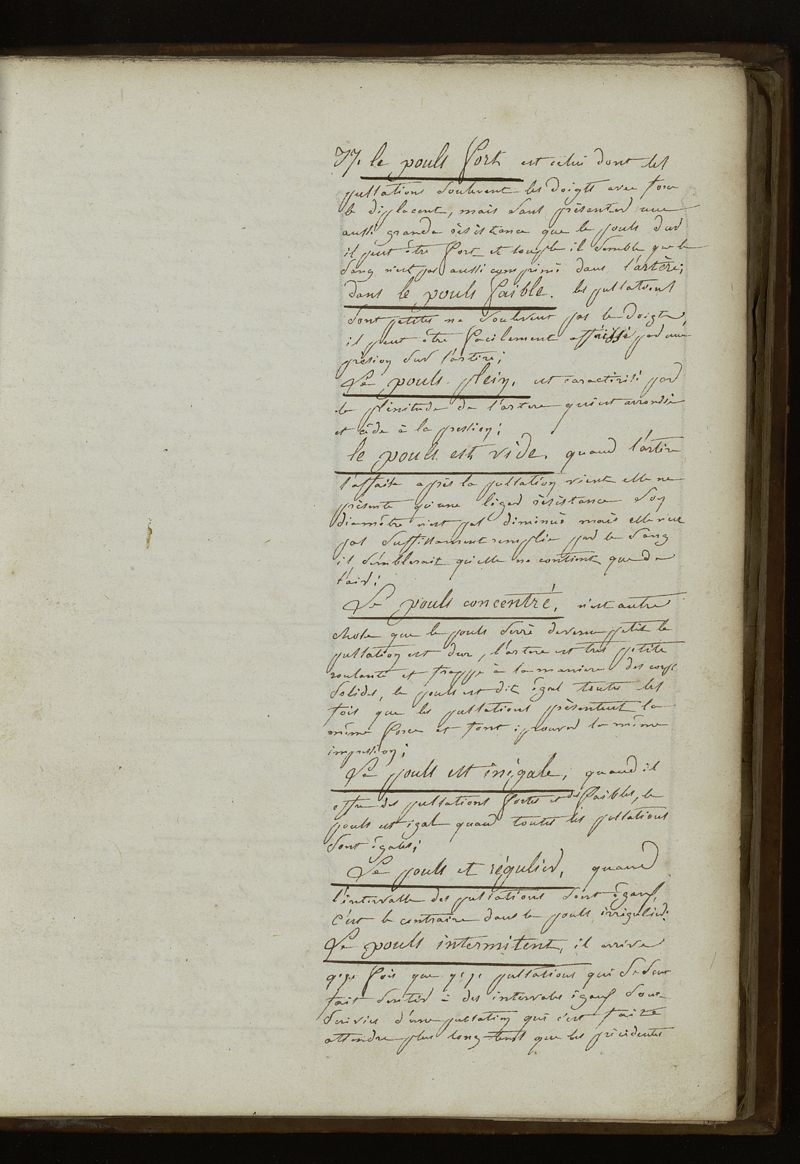 77. le pouls fort est celui dont les
pulsations soulevent les doigts avec force
le déplacent, mais sans présenter une
aussi grande résistance que le pouls dur
il peut être fort et souple il semble que le
sang n'est pas aussi comprimé dans l'artère;
dans le pouls faible. les pulsations
sont petites ne soulevent pas le doigts,
il peut être facilement affaissé par une
présion sur l'artère;
Le pouls plein, est caractérisé par
la plénitude de l'artere qui est arrondie
et cède à la pression;
le pouls est vide, quand l'artère
l'affaite après la pulsation vient elle ne
présente qu'une léger résistance son
diamètre n'est pas diminué mais elle n'est
pas suffisamment remplie par le sang
il semblerait qu'elle ne contient que de
l'air;
Le pouls concentré, n'est autre
chose que le pouls serré devenu petit la
pulsation est dur, l'artere est très petite
roulante et frappe à la maniere des corps
solides, le pouls est dit égal toutes les
fois que les pulsations présentent la
même force et font éprouver la même
impression;
Le pouls est inégale, quand il
offre des pulsations fortes et des faibles, le
pouls est égale quand toutes les pulsations
sont égales;
Le pouls et régulier, quand
l'intervalle des pulsations sont égaux,
c'est le contraire dans le pouls irrégulier.
Le pouls intermitent, il arrive
q.q. fois que q.q. pulsations qui se
fait sentir à des intervales égaux sont
suivies d'une pulsation qui c'est faite
attendre plus long tems que les précédentes